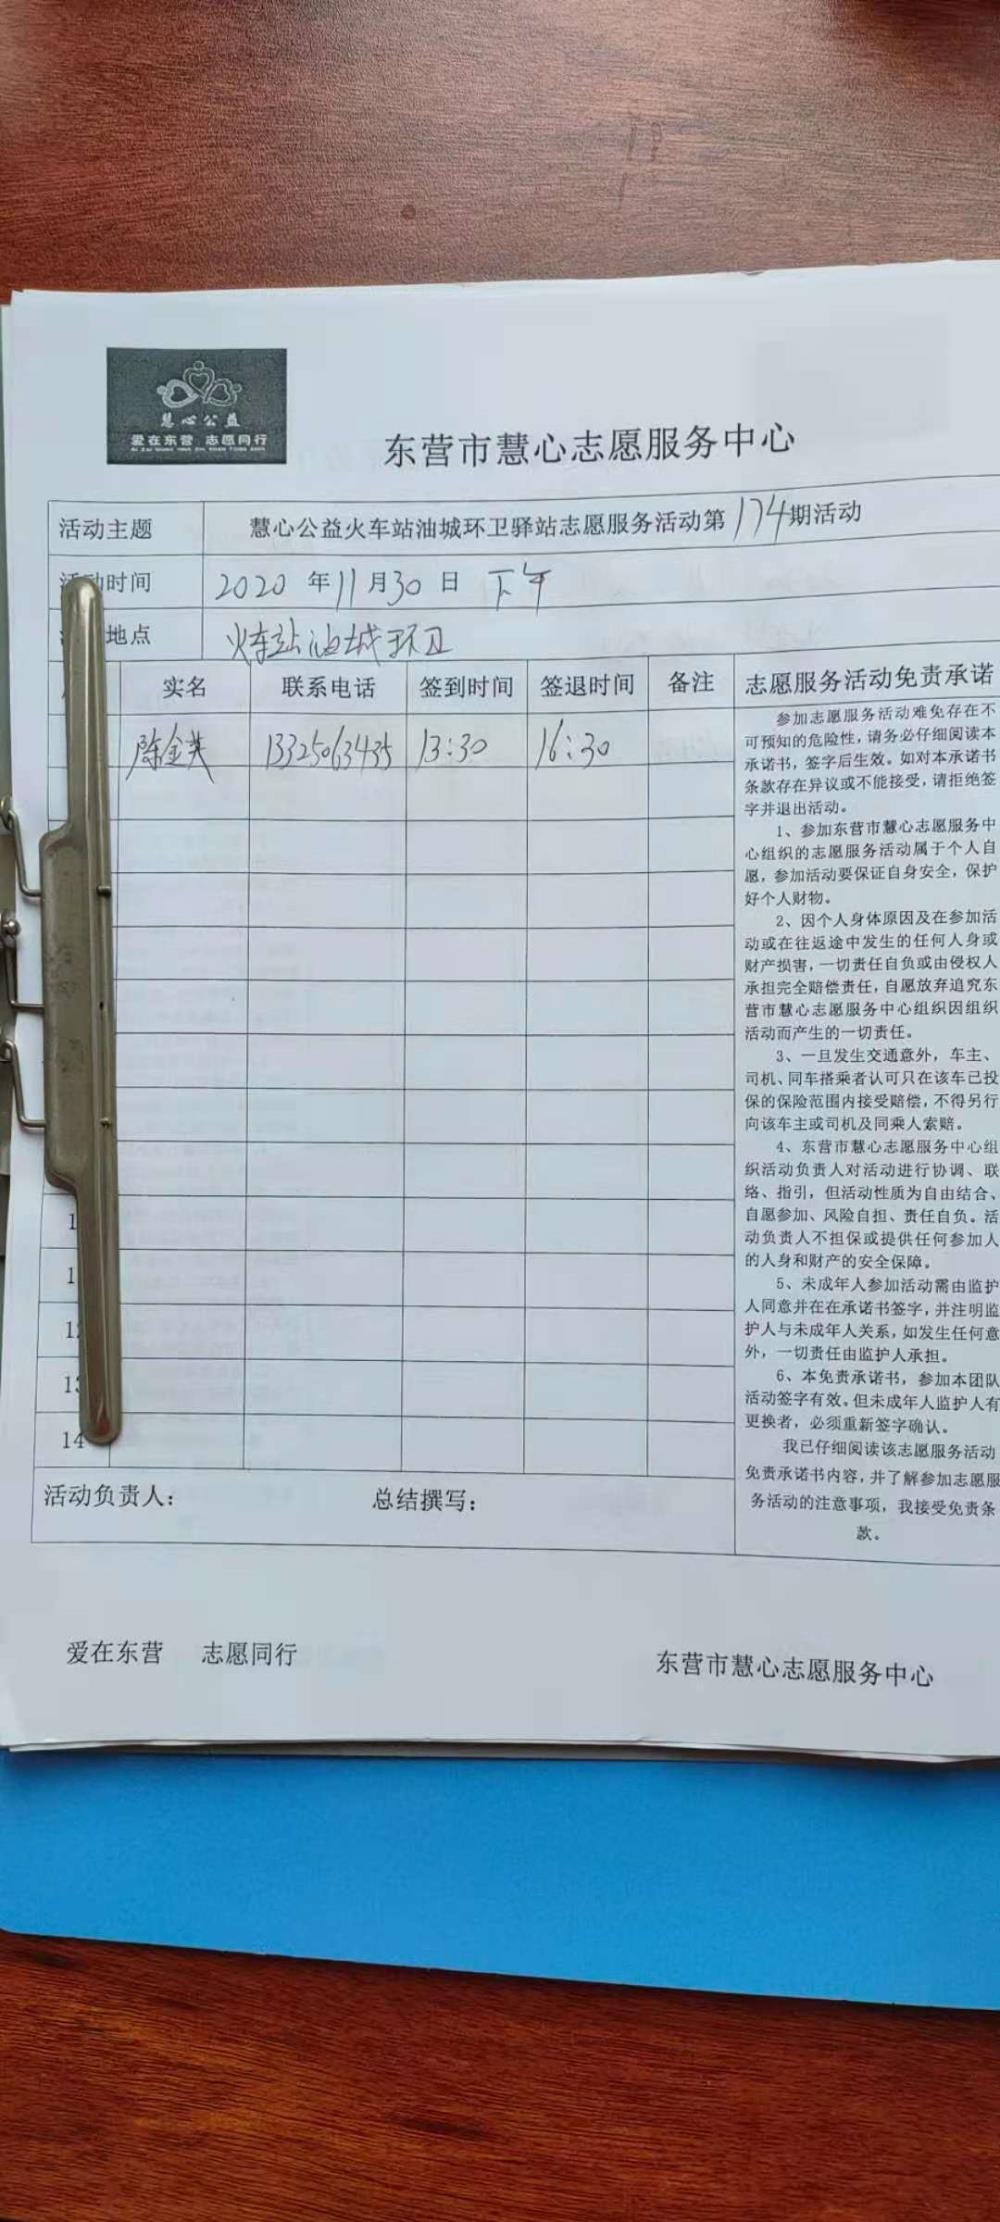 慧心公益
爱在东营 志愿同行
东营市慧心志愿服务中心
活动主题 慧心公益火车站油城环卫驿站志愿服务活动第174期活动
活动时间 2020年11月30日 下午
地点 火车站油城环卫
实名 联系电话 签到时间 签退时间 备注 志愿服务活动免责承诺
陈金英 13325063435 13:30 16:30
参加志愿服务活动难免存在不
可预知的危险性,请务必仔细阅读本
承诺书,签字后生效。如对本承诺书
条款存在异议或不能接受,请拒绝签
字并退出活动。
1、参加东营市慧心志愿服务中
心组织的志愿服务活动属于个人自
愿,参加活动要保证自身安全,保护
好个人财物。
2、因个人身体原因及在参加活
动或在往返途中发生的任何人身或
财产损害,一切责任自负或由侵权人
承担完全赔偿责任,自愿放弃追究东
营市慧心志愿服务中心组织因组织
活动而产生的一切责任。
3、一旦发生交通意外,车主、
司机、同车搭乘者认可只在该车已投
保的保险范围内接受赔偿,不得另行
向该车主或司机及同乘人索赔。
4、东营市慧心志愿服务中心组
织活动负责人对活动进行协调、联
络、指引,但活动性质为自由结合、
自愿参加、风险自担、责任自负。活
动负责人不担保或提供任何参加人
的人身和财产的安全保障。
5、未成年人参加活动需由监护
人同意并在在承诺书签字,并注明监
护人与未成年人关系,如发生任何意
外,一切责任由监护人承担。
6、本免责承诺书,参加本团队
活动签字有效。但未成年人监护人有
更换者,必须重新签字确认。
我已仔细阅读该志愿服务活动
免责承诺书内容,并了解参加志愿服
务活动的注意事项,我接受免责条
款。
1
1
12
13
14
活动负责人: 总结撰写:
爱在东营 志愿同行
东营市慧心志愿服务中心